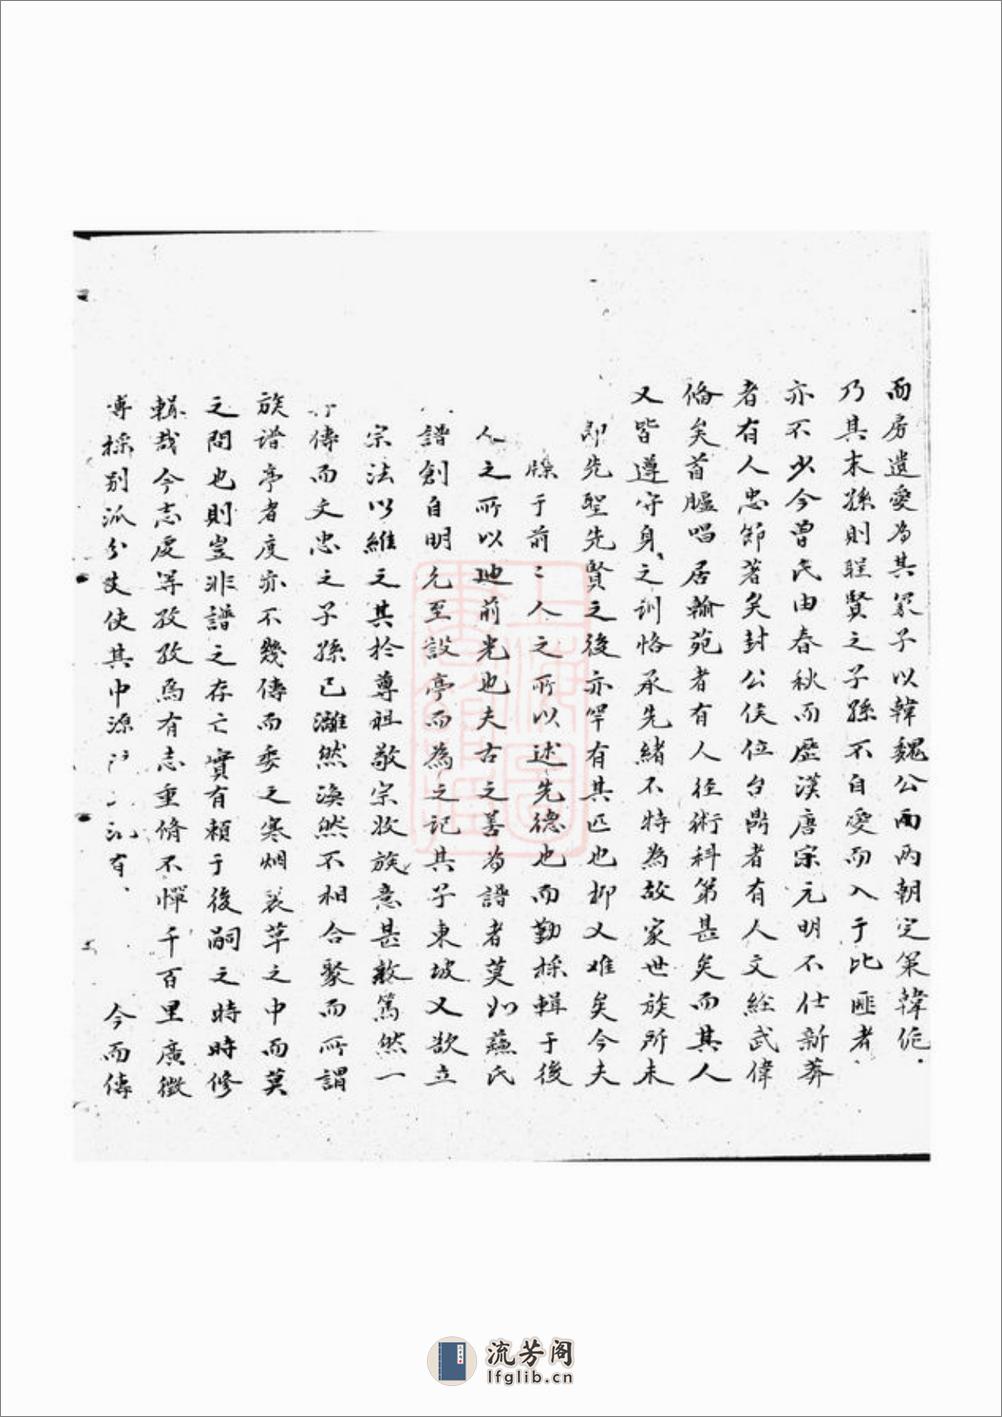 而房遺愛為其冢子以韓魏公而兩朝定策韓侂
乃其末孫則聖賢之子孫不自愛而入于比匪者
亦不少今曾氏由春秋而歷漢唐宋元明不仕新莽
者有人忠節著矣封公侯位台鼎者有人文經武偉
俻矣首臚唱居翰苑者有人徑術科第甚矣而其人
又皆遵守身之訓恪承先緒不特為故家世族所未
即先聖先賢之後亦罕有其匹也抑又难矣今夫
牒于前前人之所以述先德也而勤採輯于後
人之所以廸前光也夫古之善為譜者莫如蘓氏
譜創自明允至設亭而為之記其子東坡又欲立
宗法以維之其於尊祖敬宗收族意甚敦篤然一
傳而文忠之子孫已灕然渙然不相合聚而所謂
族譜亭者度亦不幾傳而委之寒烟衰草之中而莫
之問也則豈非譜之存亡實有頼于後嗣之時時修
輯哉今志虔等孜孜焉有志重脩不憚千百里廣徴
博採别派分支使其中源 有 今而傳
上海圖書館藏
流芳阁
lfglib.cn